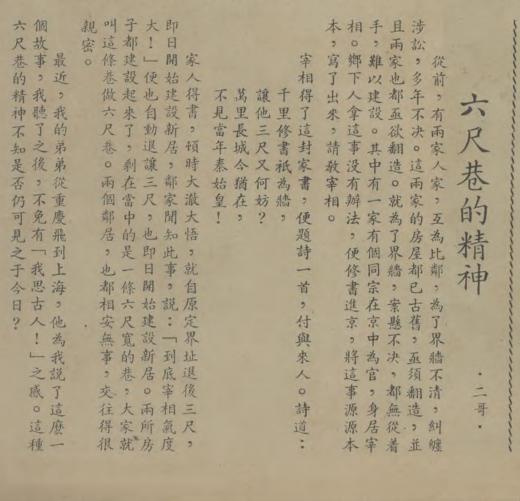 六尺巷的精神
·二哥·
從前，有兩家人家，互為比鄰，為了界牆不清，糾纏
涉訟，多年不决。這兩家的房屋都已古舊，亟須翻造，並
且兩家也都亟欲翻造。就為了界牆，案懸不决，都無從着
手，難以建設。其中有一家有個同宗在京中為官，身居宰
相。鄉下人拿這事沒有辦法，便修書進京，將這事源源本
本，寫了出來，請敎宰相。
宰相得了這封家書，便題詩一首，付與來人。詩道：
千里修書祇為牆，
讓他三尺又何妨？
萬里長城今猶在，
不見當年秦始皇！
家人得書，頓時大澈大悟，就自原定界址退後三尺，
即日開始建設新居，鄰家聞知此事，説：「到底宰相氣度
大！」便也自動退讓三尺，也即日開始建設新居。兩所房
子都建設起來了，剩在當中的是一條六尺寬的巷，大家就
叫這條巷做六尺巷。兩個鄰居，也都相安無事，交往得很
親密。
最近，我的弟弟從重慶飛到上海，他為我說了這麽一
個故事，我聽了之後，不免有「我思古人！」之感。這種
六尺巷的精神不知是否仍可見之于今日？